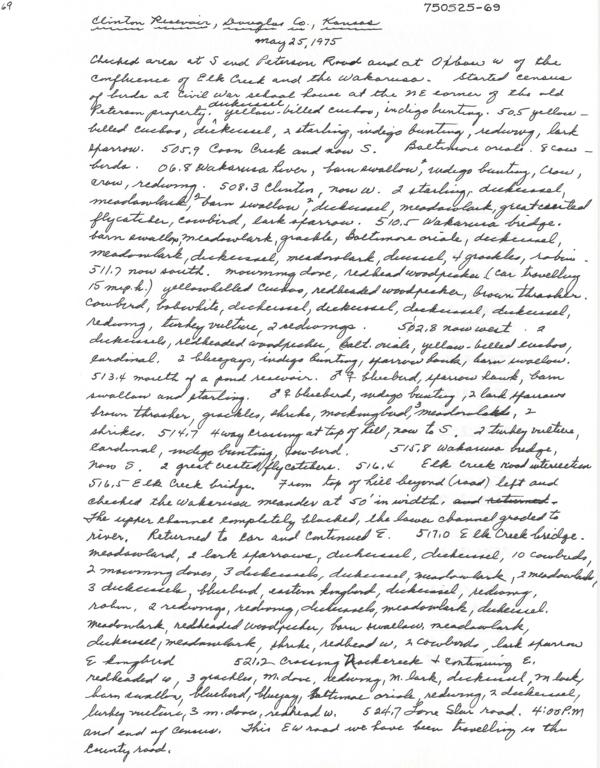 69
750525-69
Clinton Resevoir, Douglas Co., Kansas
May 25, 1975
Checked area at S end Peterson Road and at Oxbow W of the
confluence of Elk Creek and the Wakarusa. Started census
of birds at Civil War school house at the NE corner of the old
Peterson property. dickcissel, yellow-billed cuckoo, indigo bunting. 505 yellow-
billed cuckoo, dickcissel, 2 starling, indigo bunting, redwing, lark
sparrow. 505.9 Coon Creek and now S. Baltimore oriole. 8 cow-
birds. 06.8 Wakarusa River, barn swallow, indigo bunting, crow,
crow, redwing. 508.3 Clinton, now W. 2 starling, dickcissel,
meadowlark, 2 barn swallow, 2 dickcissel, meadowlark, great crested
flycatcher, cowbird, lark sparrow. 510.5 Wakarusa bridge.
barn swallow, meadowlark, grackle, Baltimore oriole, dickcissel,
meadowlark, dickcissel, meadowlark, 4 grackles, robin.
511.7 now south. mourning dove, redhead woodpecker (car travelling
15 m.p.h.) yellowbilled cuckoo, redheaded woodpecker, brown thrasher.
Cowbird, bobwhite, dickcissel, dickcissel, dickcissel, dickcissel,
redwing, turkey vulture, 2 redwings. 502.8 now west. 2
dickcissels, redheaded woodpecker, Balt. oriole, yellow-billed cuckoo,
Cardinal. 2 bluejays, indigo bunting, sparrow hawk, barn swallow.
513.4 mouth of a pond resevoir. ♂ ♀ bluebird, sparrow hawk, barn
swallow and starling. ♂ ♀ bluebird, indigo bunting, 2 lark sparrows
brown thrasher, grackles, shrike, mockingbird, 3 meadowlarks, 2
shrikes. 514.7 4 way crossing at top of hill, now to S. 2 turkey vulture,
Cardinal, indigo bunting, cowbird. 515.8 Wakarusa bridge,
now S. 2 great crested flycatchers. 516.4 Elk Creek road intersection
516.5 Elk Creek bridge. From top of hill beyond (road) left and
checked the Wakarusa meander at 50' in width, and returned.
The upper channel completely blocked, the lower channel graded to
river. Returned to car and continued E. 517.0 Elk Creek bridge.
meadowlard, 2 lark sparrows, dickcissel, dickcissel, 10 cowbirds,
2 mourning doves, 3 dickcissels, dickcissel, meadowlark, 2 meadowlarks,
3 dickcissels, bluebird, eastern kingbird, dickcissel, redwing,
robin, 2 redwings, redwing, dickcissels, meadowlark, dickcissel.
Meadowlark, redheaded woodpecker, barn swallow, meadowlark,
dickcissel, meadowlark, shrike, redhead w, 2 cowbirds, lark sparrow
E kingbird 521.2 Crossing Rock creek + continuing E.
redheaded w, 3 grackles, m. dove, redwing, m. lark, dickcissel, m lark,
barn swallow, bluebird, bluejay, Baltimore oriole, redwing, 2 dickcissel,
turkey vulture, 3 m. doves, redhead w. 524.7 Lone Star road. 4:00 P.M
and end of census. This EW road we have been travelling is the
county road.